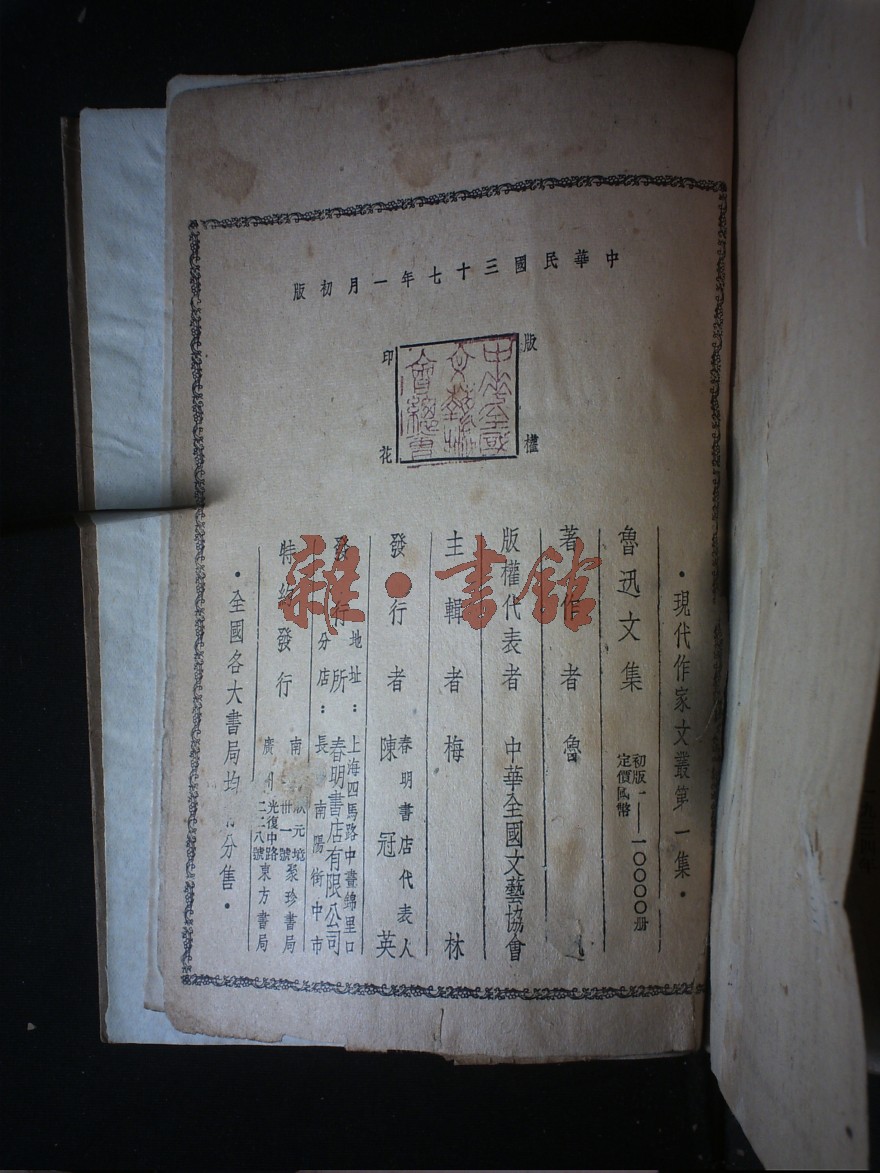 中華民國三十七年一月初版
版權
印花
中華全國文藝協會總會
·現代作家文叢第一集·
魯迅文集
初版一——一〇〇〇〇册
定價國幣
著作者 魯
版權代表者 中華全國文藝協會
主輯者 梅林
發行者 春明書店代表人
陳冠英
發行所 春明書店有限公司
地址：上海四馬路中晝錦里口
分店：長 南陽街中市
特約發行
南 狀元境
卅一號 聚珍書局
廣州 光復中路
二二八號 東方書局
·全國各大書局均 分售·
雜·書館